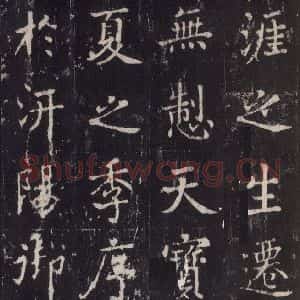 涯之生遷
無天寶
夏之季序
於汧陽御
Shufawang.CN